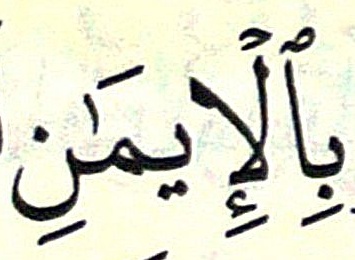 بِٱلْإِيمَٰنِ